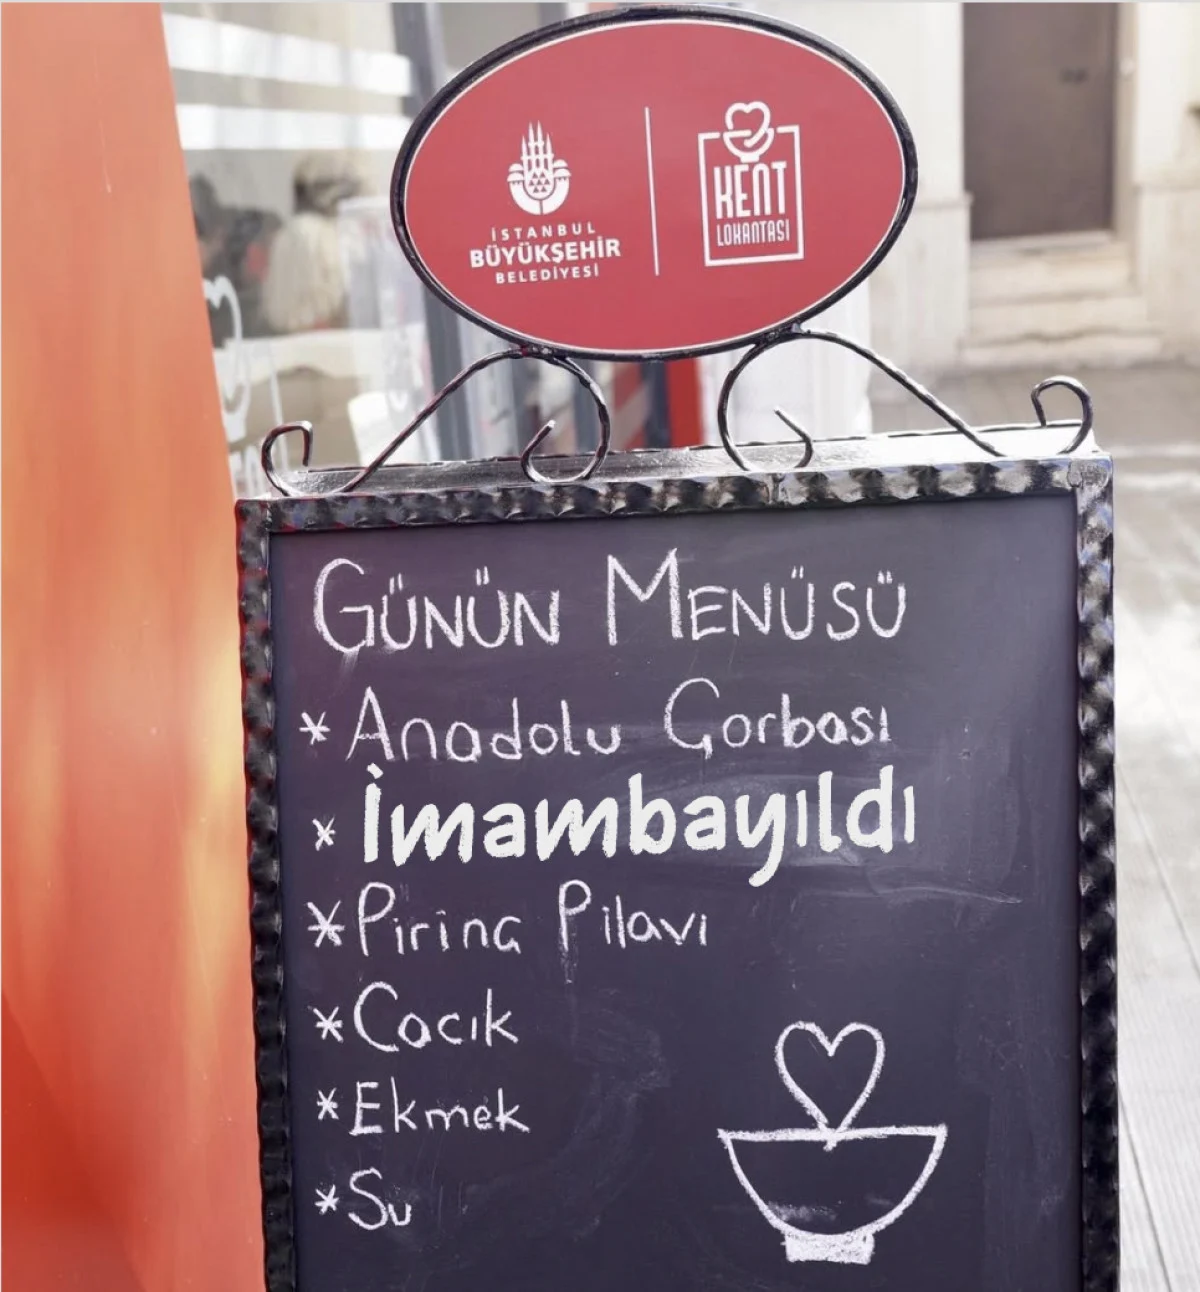 İSTANBUL
BÜYÜKŞEHİR
BELEDİYESİ
KENT
LOKANTASI
GÜNÜN MENÜSÜ
* Anadolu Çorbası
* İmambayıldı
* Pirinç Pilavı
* Cacık
* Ekmek
* Su